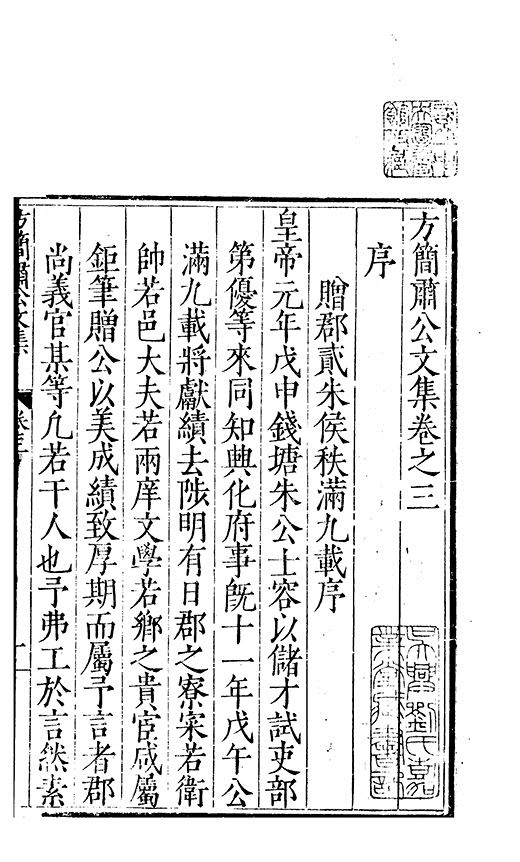 方簡肅公文集卷之三
序
贈郡貳朱侯秩滿九載序
皇帝元年戊申錢塘朱公士容以儲才試吏部
第優等來同知興化府事旣十一年戊午公
滿九載將獻績去陟明有日郡之寮寀若衛
帥若邑大夫若兩庠文學若鄉之貴宦咸屬
鉅筆贈公以美成績致厚期而屬予言者郡
尚義官某等凢若干人也予弗工於言然素
方簡肅公文集
卷之三
一
吳興劉氏嘉
業堂藏書記